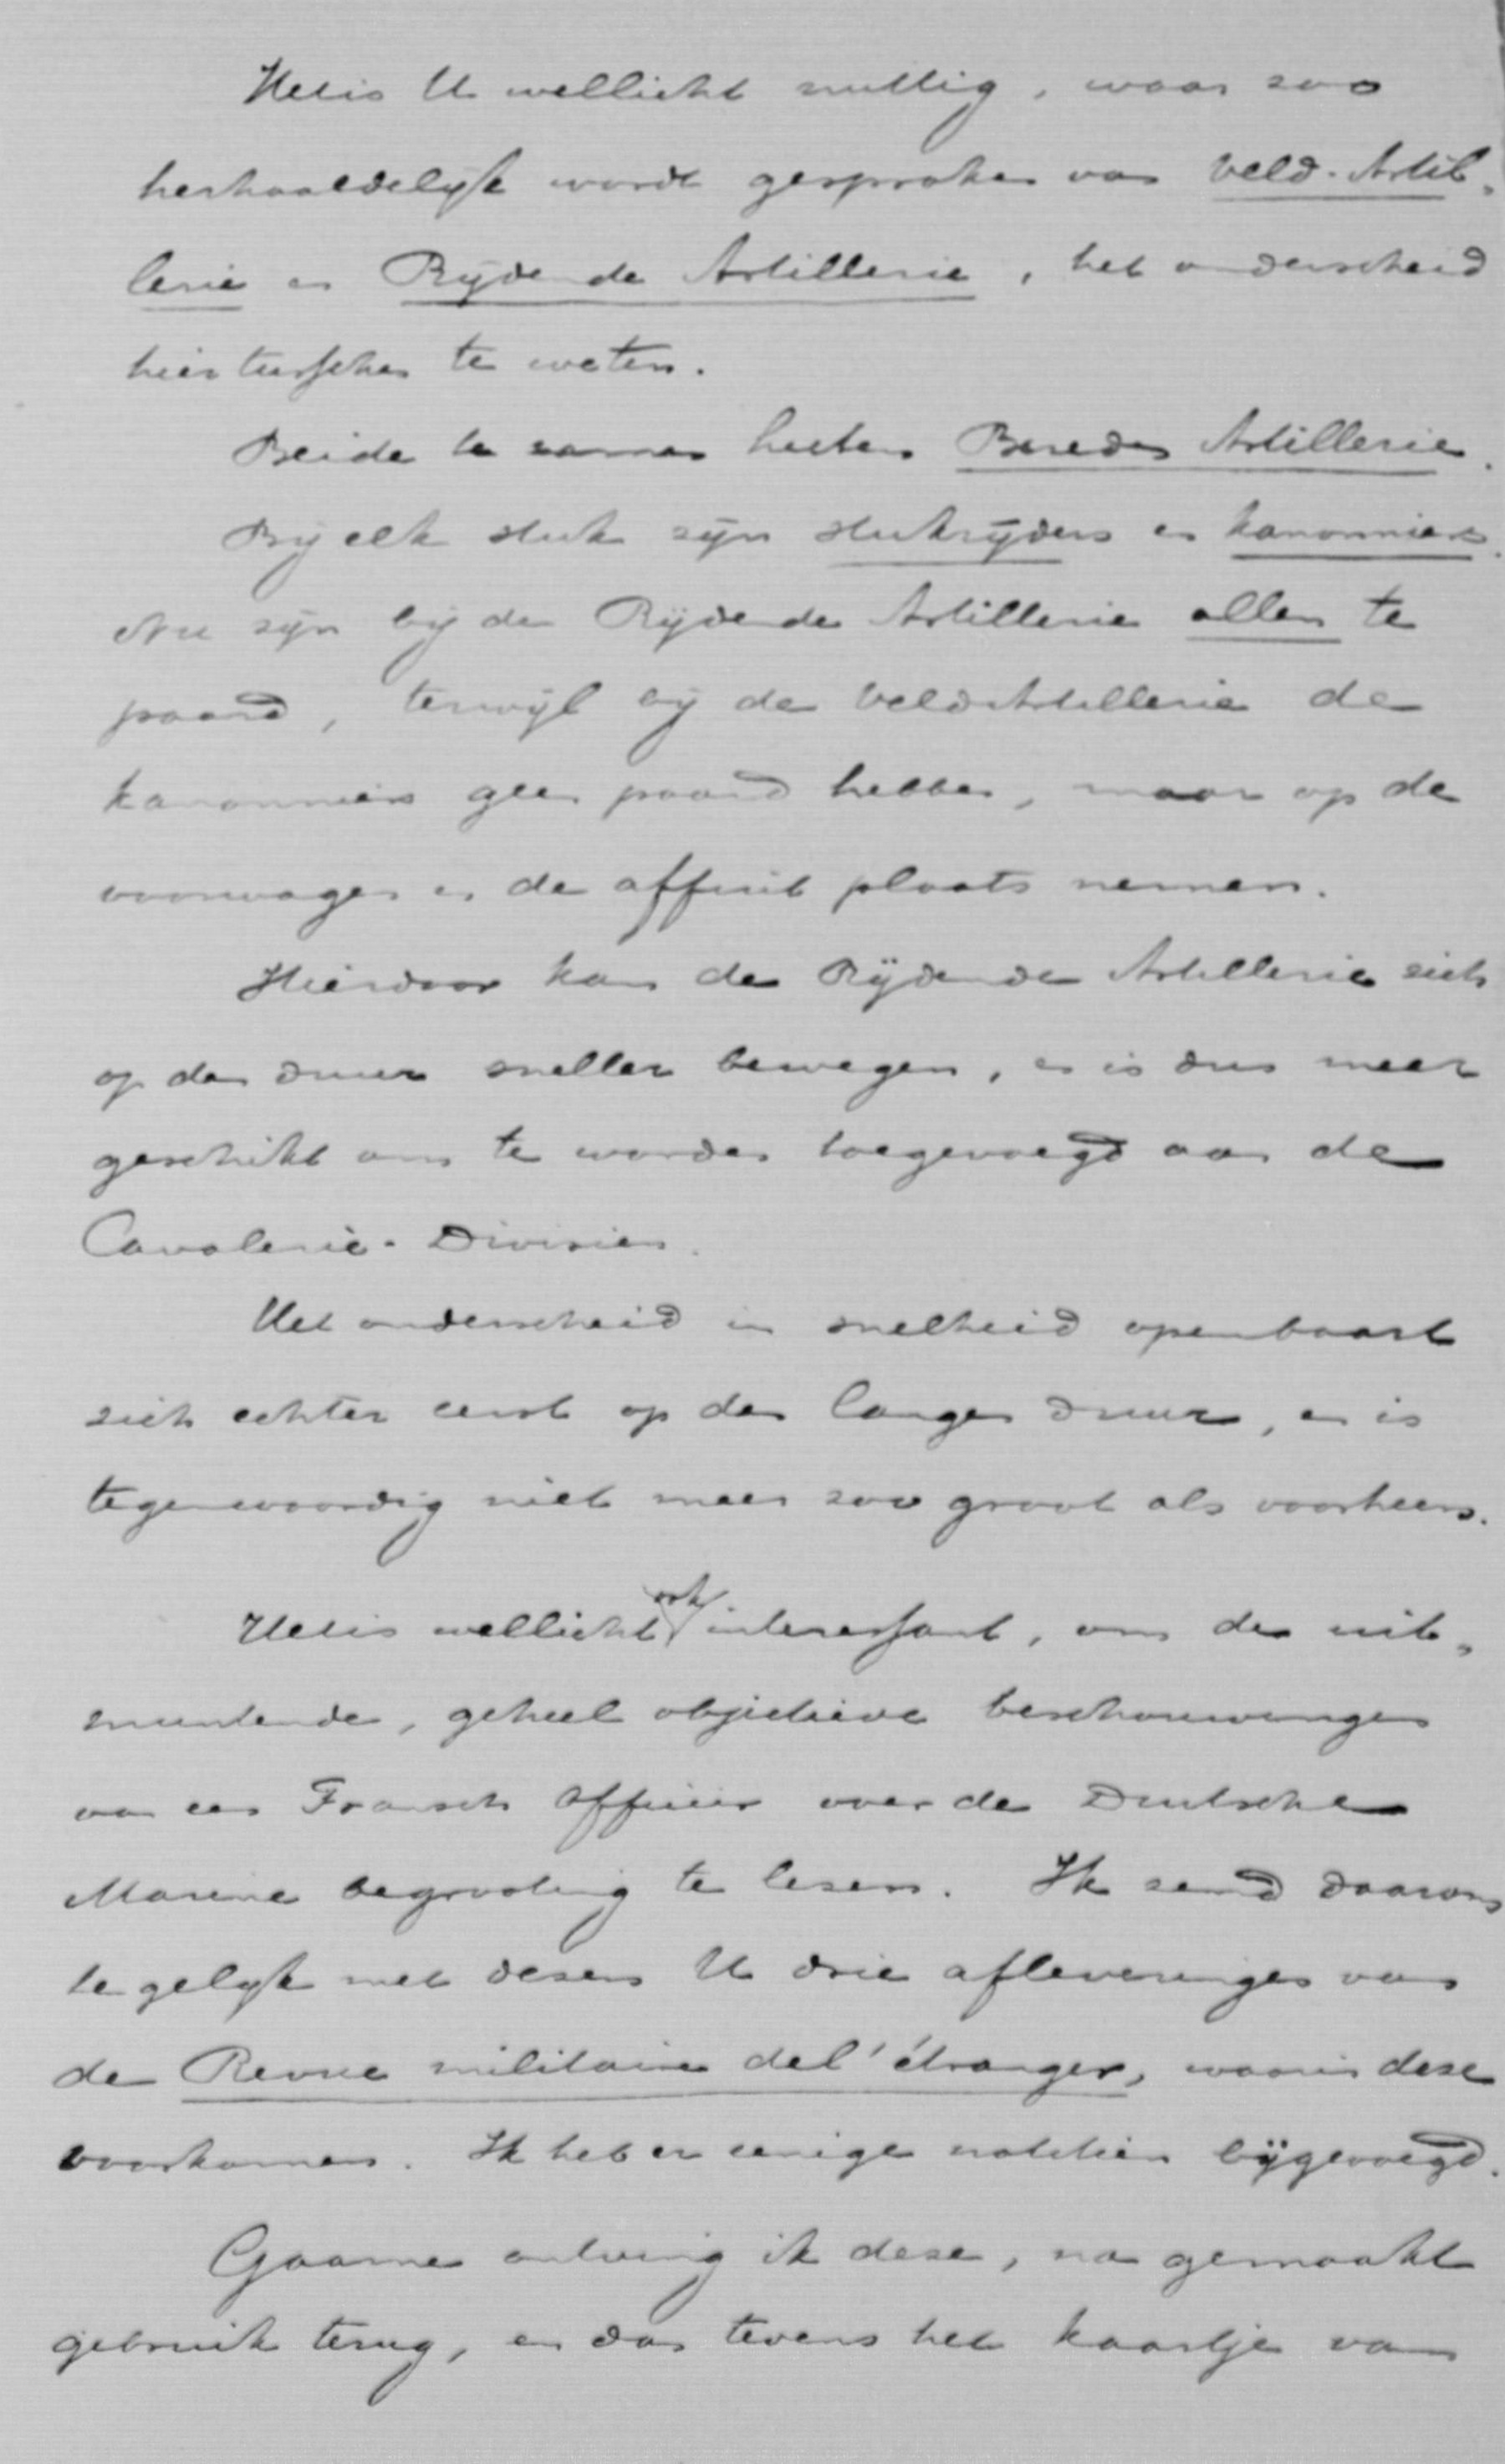 Het is U wellicht nuttig, waar zoo
herhaaldelijk wordt gesproken van Veld-Artil-
lerie en Rijdende Artillerie, het onderscheid
hier tusschen te weten.
Beide te samen heeten Bereden Artillerie.
Bij elk stuk zijn stukrijders en kanonniers.
Nu zijn bij de Rijdende Artillerie allen te
paard, terwijl bij de Veld Artillerie de
kanonniers geen paard hebben, maar op de
voorwagen en de affuit plaats nemen.
Hierdoor kan de Rijdende Artillerie zich
op den duur sneller bewegen, en is dus meer
geschikt om te worden toegevoegd aan de
Cavalerie-Divisien.
Het onderscheid in snelheid openbaart
zich echter eerst op den langen duur, en is
tegenwoordig niet meer zoo groot als voorheen.
Het is wellicht ook interessant, om de uit-
muntende, geheel objectieve beschouwingen
van een Fransch officier over de Duitsche
Marine begrooting te lezen. Ik zend daarom
te gelijk met dezen U drie afleveringen van
de Revue militaire de l'étranger, waarin deze
voorkomen. Ik heb er eenige notitien bijgevoegd.
Gaarne ontving ik deze, na gemaakt
gebruik terug, en dan tevens het kaartje van